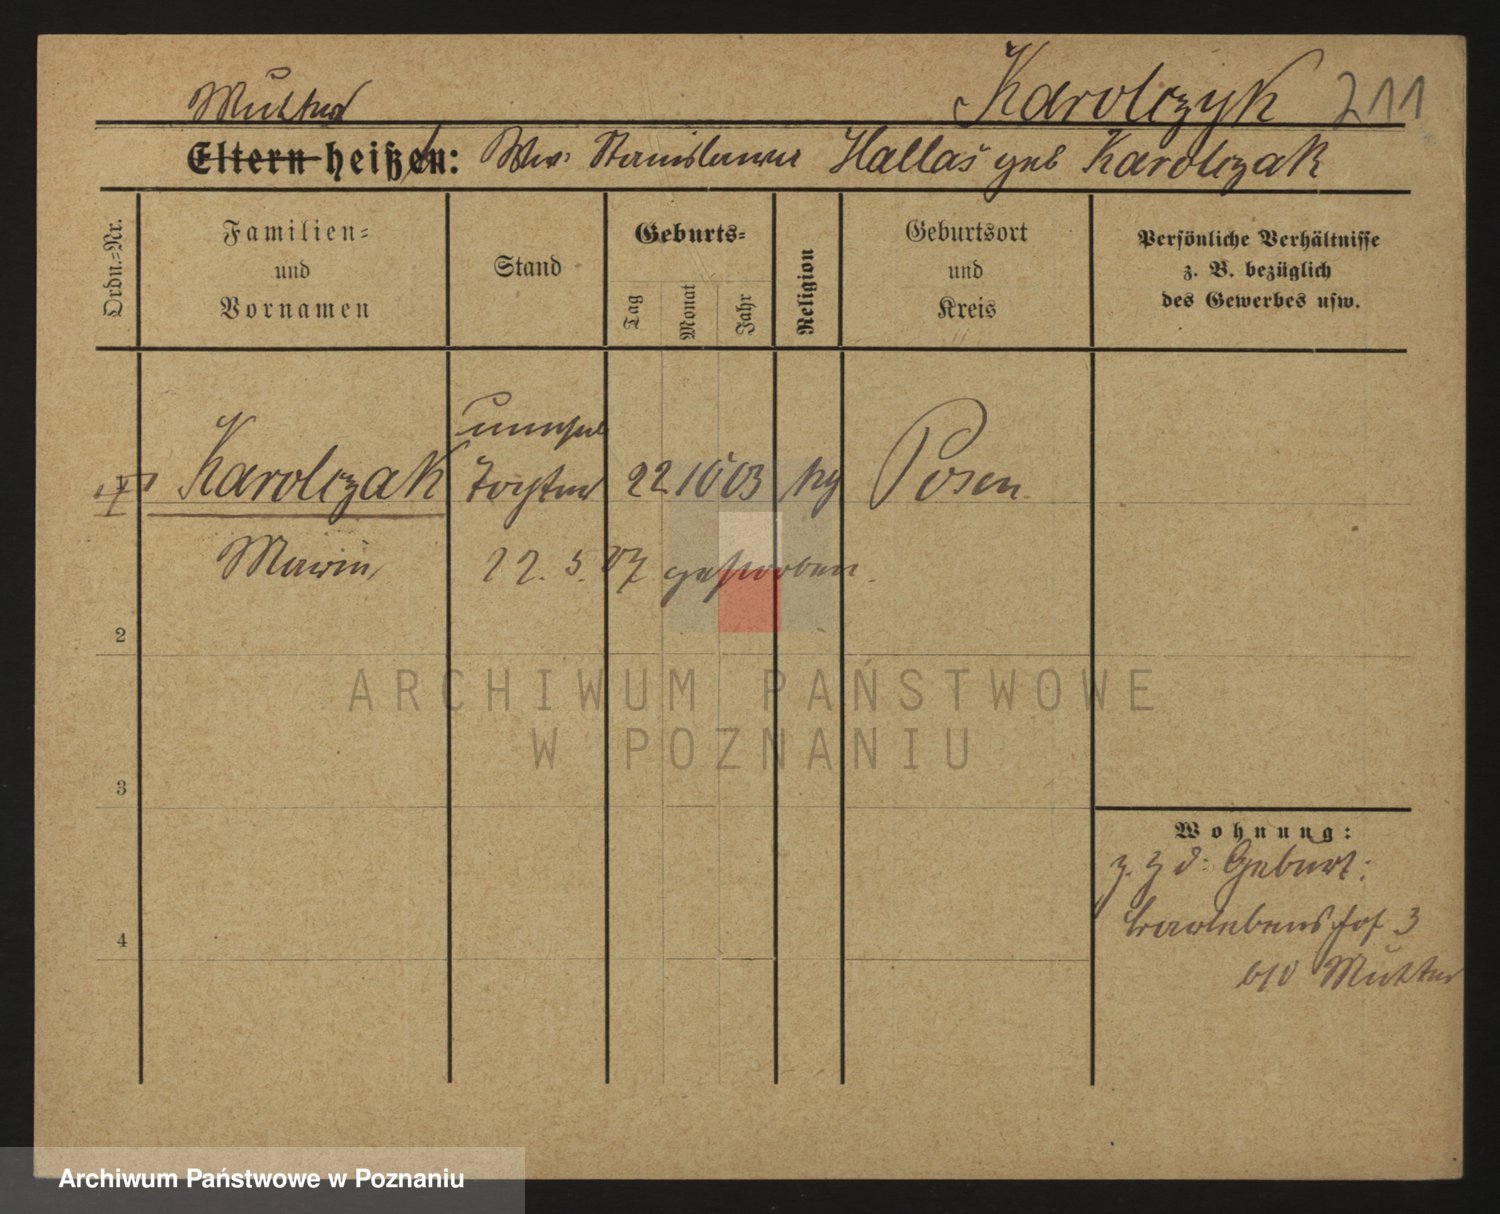 Karolczyk 211
Mutter
Eltern heißen: Ww. Stanislawa Hallas geb Karolczak
Ordn.-Nr.
Familien-
und
Vornamen
Stand
Geburts-
Tag
Monat
Jahr
Religion
Geburtsort
und
Kreis
Persönliche Verhältnisse
z. B. bezüglich
des Gewerbes usw.
unehel
Karolczak Tochter 22 10 03 Posen
22. 5. 07 gestorben.
2
3
4
Wohnung:
z. Z d. Geburt:
3
Mutter
ARCHIWUM PAŃSTWOWE
W POZNANIU
Archiwum Państwowe w Poznaniu